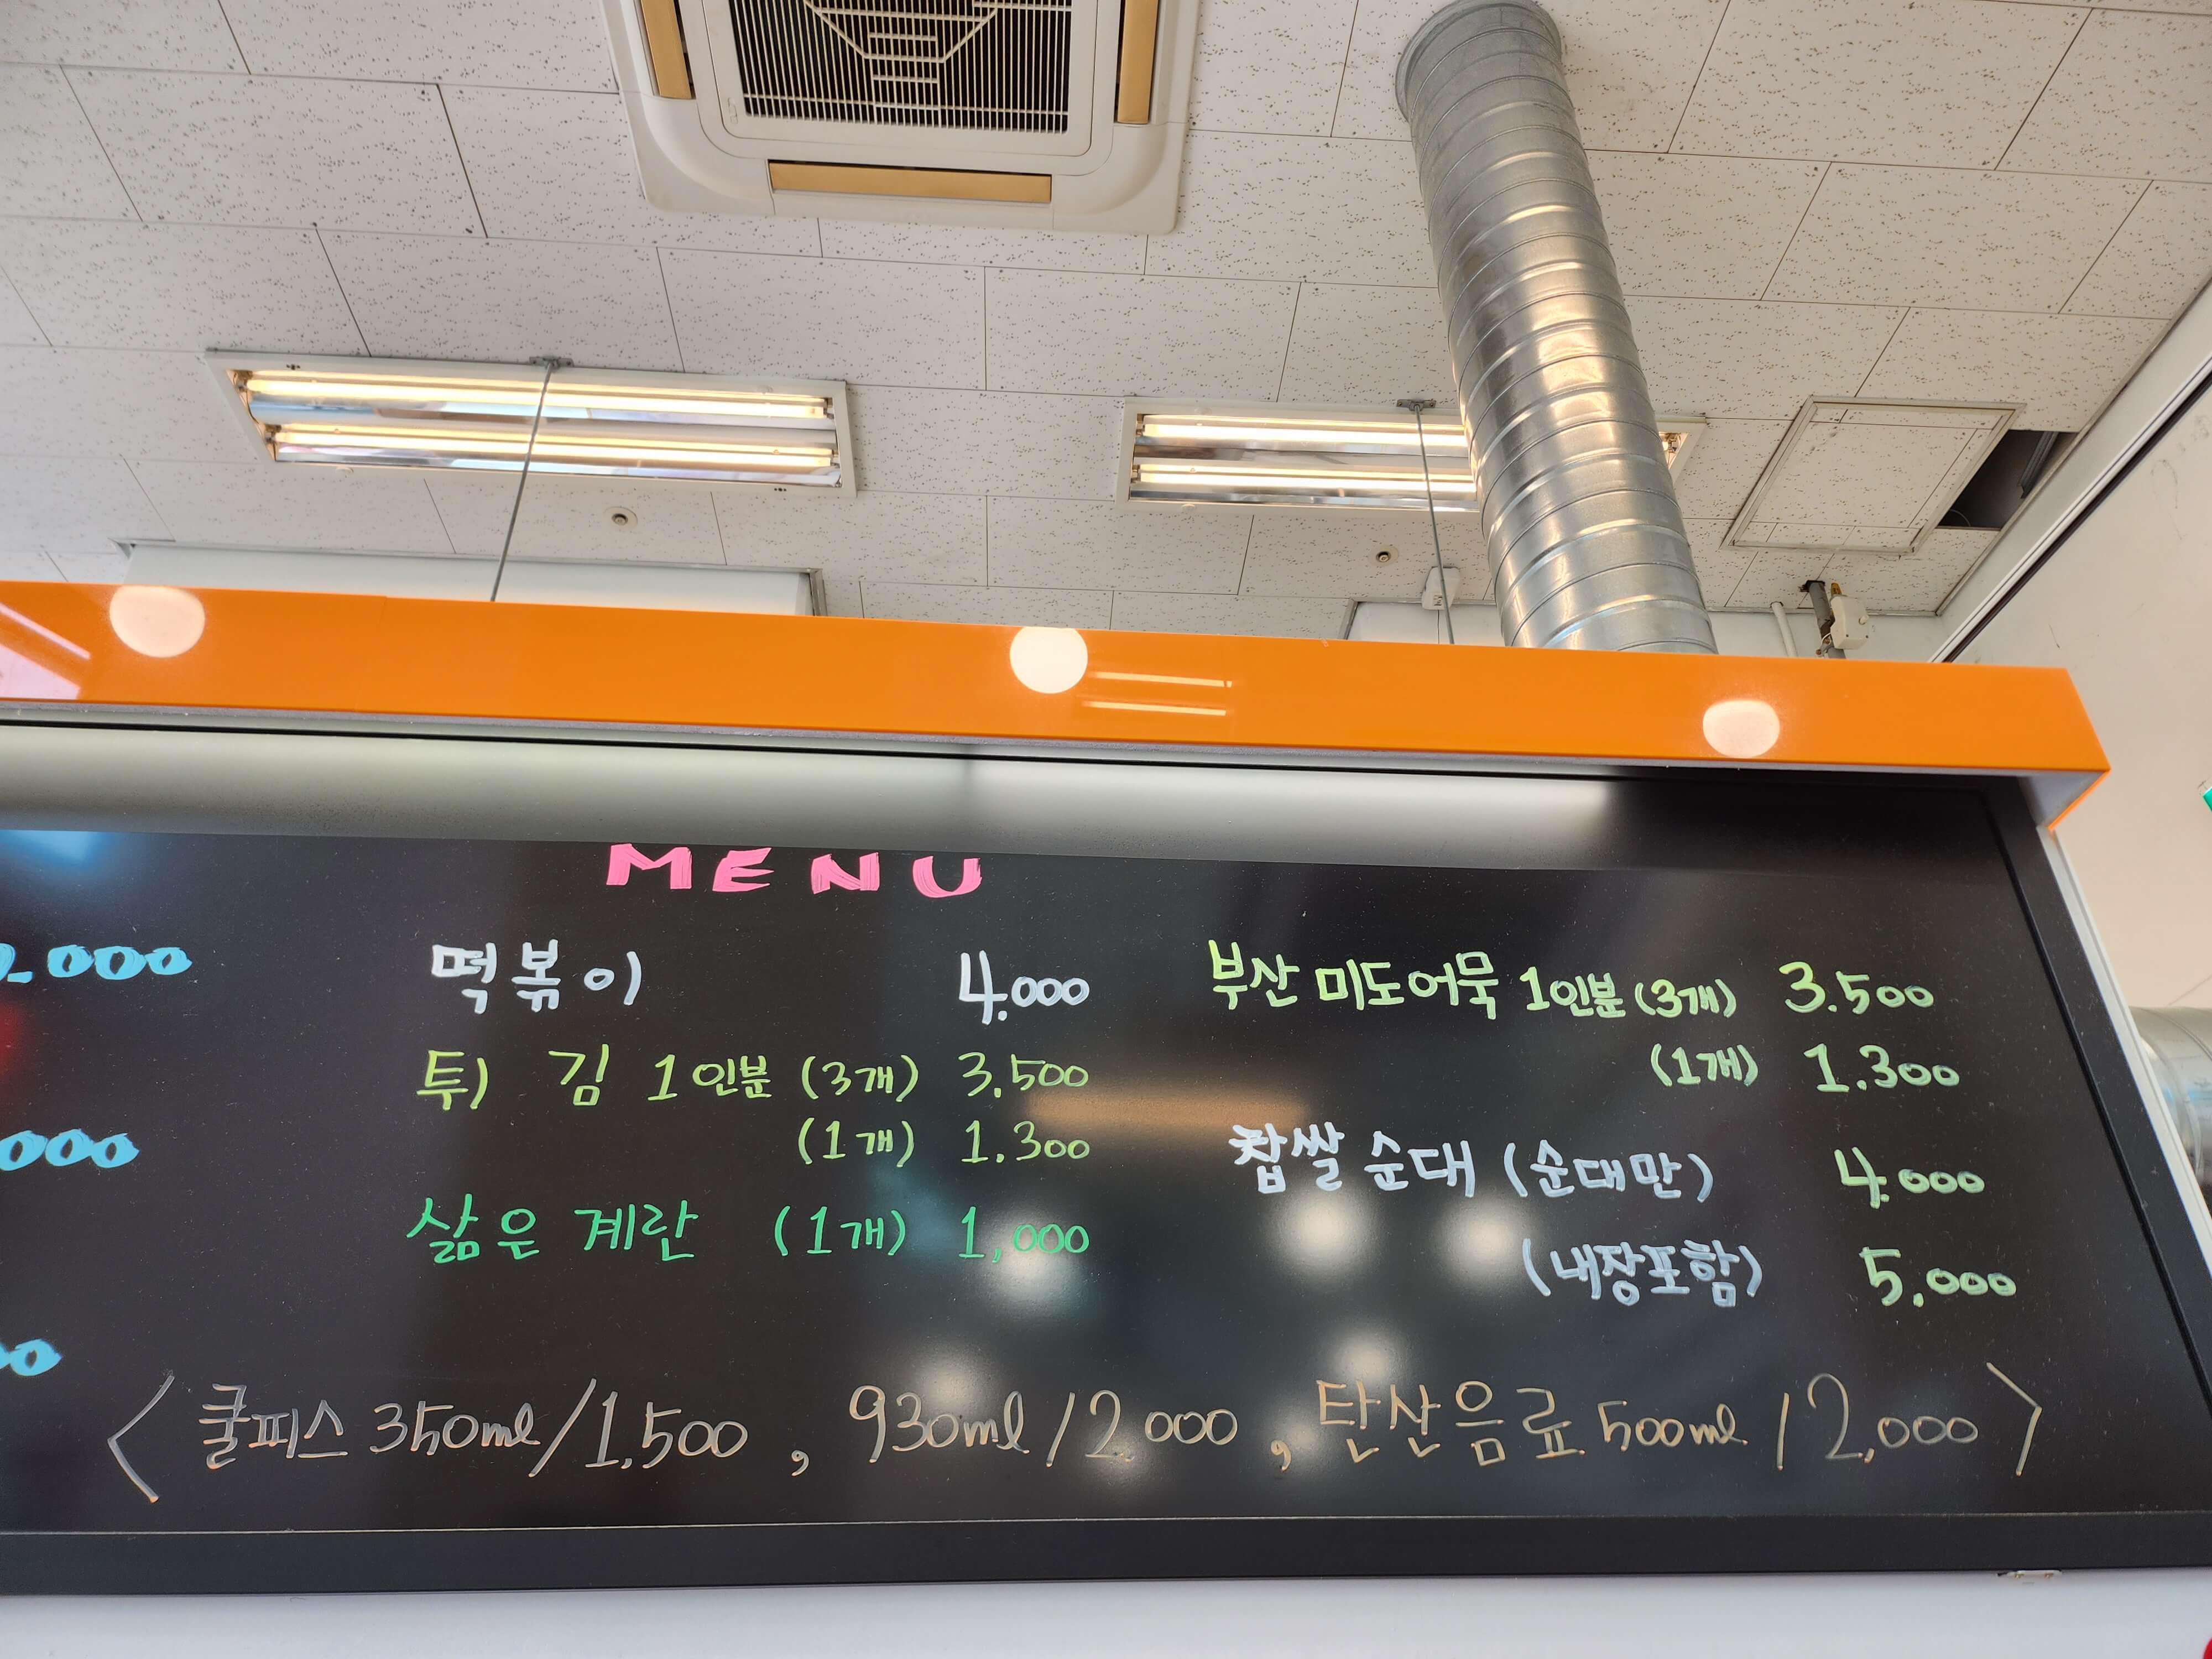 MENU
떡볶이 4.000
튀김 1인분 (3개) 3.500
(1개) 1.300
삶은 계란 (1개) 1,000
부산 미도어묵 1인분 (3개) 3.500
(1개) 1.300
찹쌀순대 (순대만) 4.000
(내장포함) 5,000
<쿨피스 350ml/1,500, 930ml/2.000, 탄산음료 500ml/2,000>
000
000